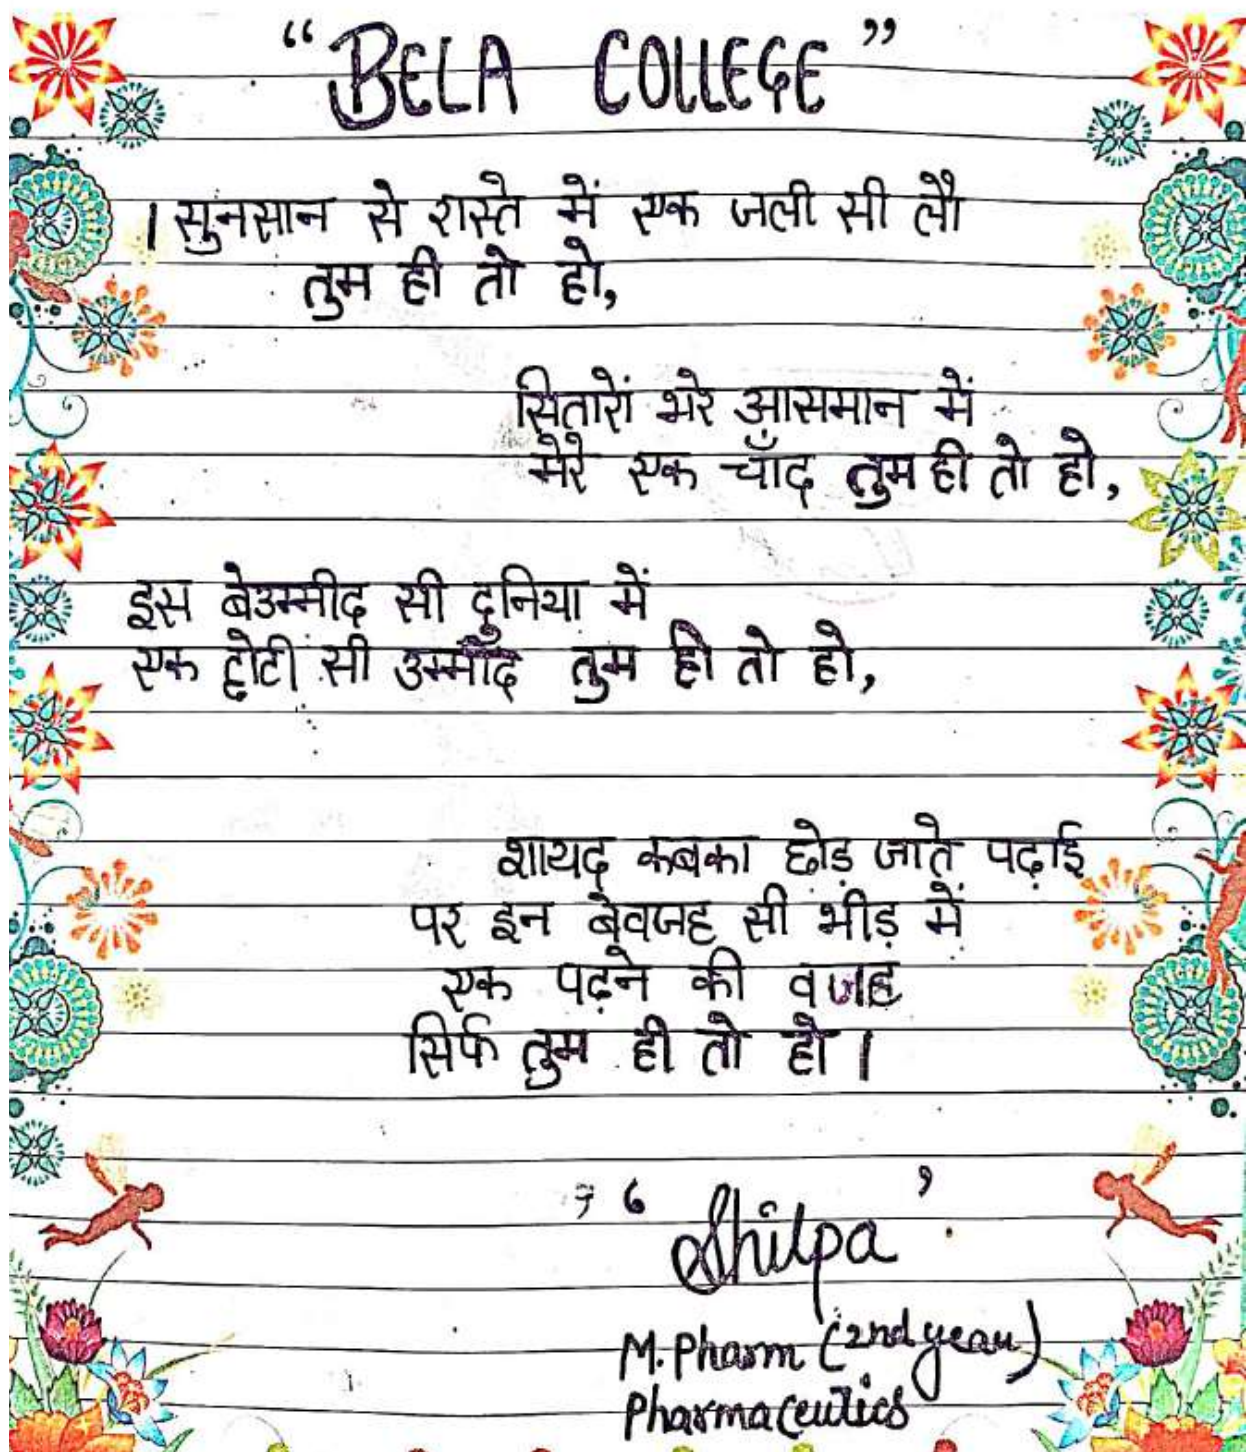 “BELA COLLEGE”
। सुनसान से रास्ते में एक जली सी लौ
तुम ही तो हो,
सितारों भरे आसमान में
मेरे एक चाँद तुम ही तो हो,
इस बेउम्मीद सी दुनिया में
एक छोटी सी उम्मीद तुम ही तो हो,
शायद कबका छोड़ जाते पढ़ाई
पर इन बेवजह सी भीड़ में
एक पढ़ने की वजह
सिर्फ तुम ही तो हो ।
‘Shilpa’
M.Pharm (2nd year)
Pharmaceutics